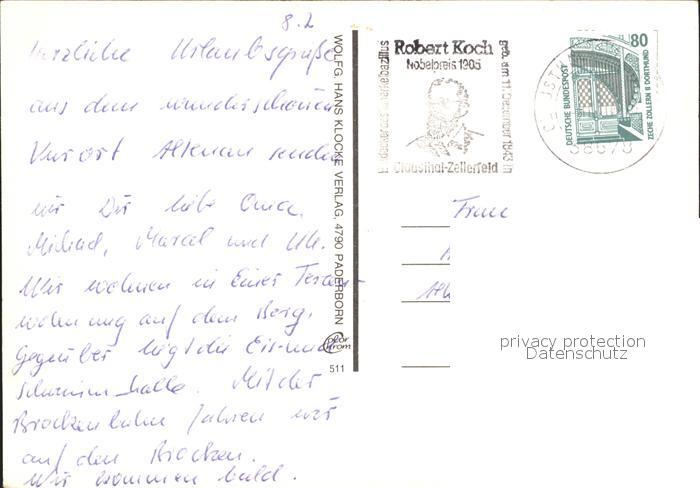 8.2
Herzliche Urlaubsgrüße
aus dem wunderschönen
Kurort Altenau senden
wir Dir liebe Oma.
Michael, Marcel und Ute.
Wir wohnen in Einer Ferien-
wohnung auf dem Berg.
Gegenüber liegt die Eis- und
schwimmhalle. Mit der
Brockenbahn fahren wir
auf den Brocken.
Wir kommen bald.
WOLFG. HANS KLOCKE VERLAG, 4790 PADERBORN
color chrom
511
Robert Koch
Nobelpreis 1905
geb. am 11. Dezember 1843 in
Clausthal-Zellerfeld
80
DEUTSCHE BUNDESPOST
ZECHE ZOLLERN II DORTMUND
38678
Frau
privacy protection
Datenschutz